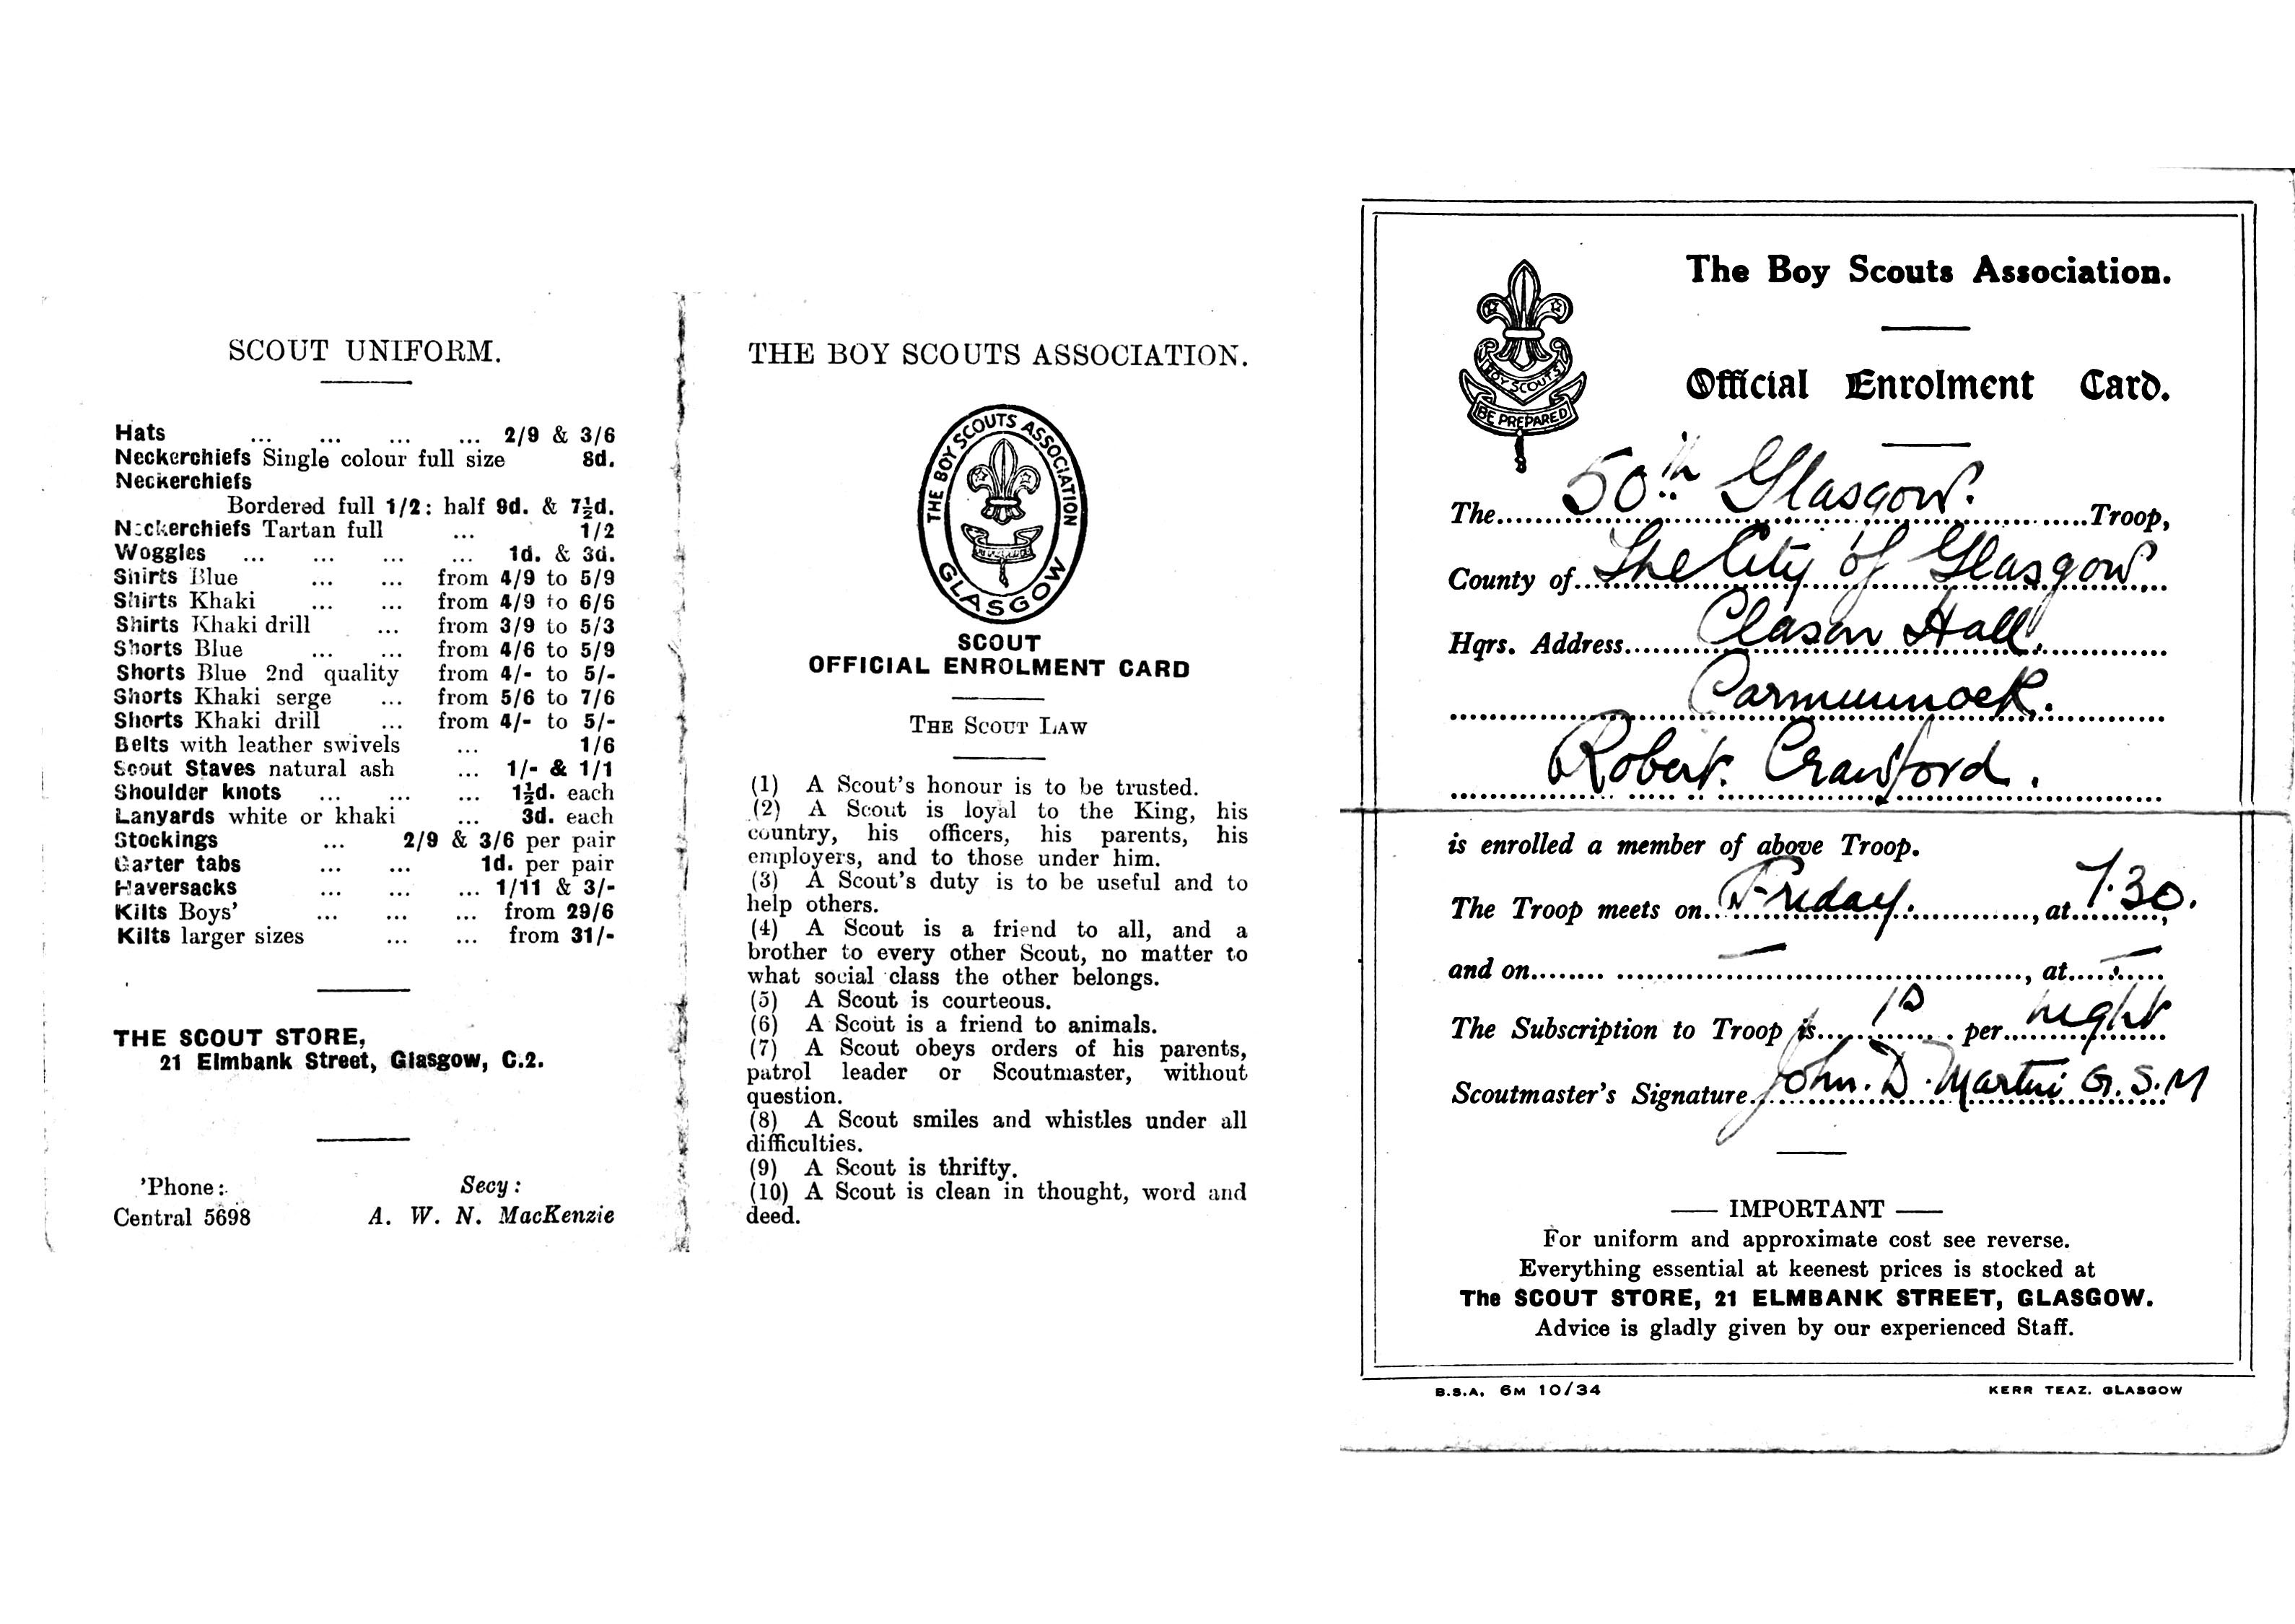 SCOUT UNIFORM.
Hats ... ... ... ... 2/9 & 3/6
Neckerchiefs Single colour full size 8d.
Neckerchiefs
Bordered full 1/2: half 9d. & 7½d.
Neckerchiefs Tartan full ... 1/2
Woggles ... ... ... ... 1d. & 3d.
Shirts Blue ... ... from 4/9 to 5/9
Shirts Khaki ... ... from 4/9 to 6/6
Shirts Khaki drill ... from 3/9 to 5/3
Shorts Blue ... ... from 4/6 to 5/9
Shorts Blue 2nd quality from 4/- to 5/-
Shorts Khaki serge ... from 5/6 to 7/6
Shorts Khaki drill ... from 4/- to 5/-
Belts with leather swivels ... 1/6
Scout Staves natural ash ... 1/- & 1/1
Shoulder knots ... ... ... 1½d. each
Lanyards white or khaki ... 3d. each
Stockings ... 2/9 & 3/6 per pair
Garter tabs ... ... 1d. per pair
Haversacks ... ... ... 1/11 & 3/-
Kilts Boys' ... ... ... from 29/6
Kilts larger sizes ... ... from 31/-
THE SCOUT STORE,
21 Elmbank Street, Glasgow, C.2.
'Phone: Secy:
Central 5698 A. W. N. MacKenzie
THE BOY SCOUTS ASSOCIATION.
THE BOY SCOUTS ASSOCIATION
GLASGOW
SCOUT
OFFICIAL ENROLMENT CARD
THE SCOUT LAW
(1) A Scout's honour is to be trusted.
(2) A Scout is loyal to the King, his
country, his officers, his parents, his
employers, and to those under him.
(3) A Scout's duty is to be useful and to
help others.
(4) A Scout is a friend to all, and a
brother to every other Scout, no matter to
what social class the other belongs.
(5) A Scout is courteous.
(6) A Scout is a friend to animals.
(7) A Scout obeys orders of his parents,
patrol leader or Scoutmaster, without
question.
(8) A Scout smiles and whistles under all
difficulties.
(9) A Scout is thrifty.
(10) A Scout is clean in thought, word and
deed.
The Boy Scouts Association.
Official Enrolment Card.
BOY SCOUTS
BE PREPARED
The 50th Glasgow. Troop,
County of The City of Glasgow
Hqrs. Address Clason Hall,
Carmunnock.
Robert Crawford.
is enrolled a member of above Troop.
The Troop meets on Friday, at 7.30.
and on — , at —
The Subscription to Troop is 1D per night
Scoutmaster's Signature John. D. Martin G.S.M
— IMPORTANT —
For uniform and approximate cost see reverse.
Everything essential at keenest prices is stocked at
The SCOUT STORE, 21 ELMBANK STREET, GLASGOW.
Advice is gladly given by our experienced Staff.
B.S.A. 6M 10/34 KERR TEAZ. GLASGOW